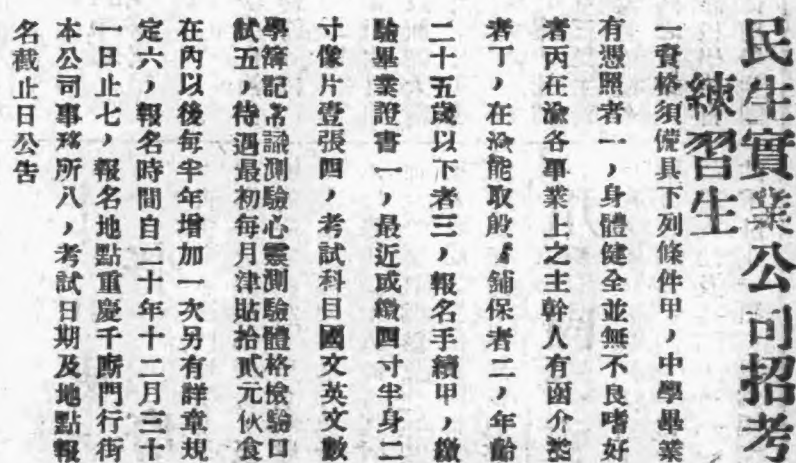 民生實業公司招考
練習生
一資格須備具下列條件甲，中學畢業
有憑照者一，身體健全並無不良嗜好
者丙在渝各事業上之主幹人有函介紹
者丁，在渝能取殷實鋪保者二，年齡
二十五歲以下者三，報名手續甲，繳
驗畢業證書一，最近或繳四寸半身二
寸像片壹張四，考試科目國文英文數
學簿記常識測驗心靈測驗體格檢驗口
試五，待遇最初每月津貼拾貳元伙食
在內以後每半年增加一次另有詳章規
定六，報名時間自二十年十二月三十
一日止七，報名地點重慶千廝門行街
本公司事務所八，考試日期及地點報
名截止日公告